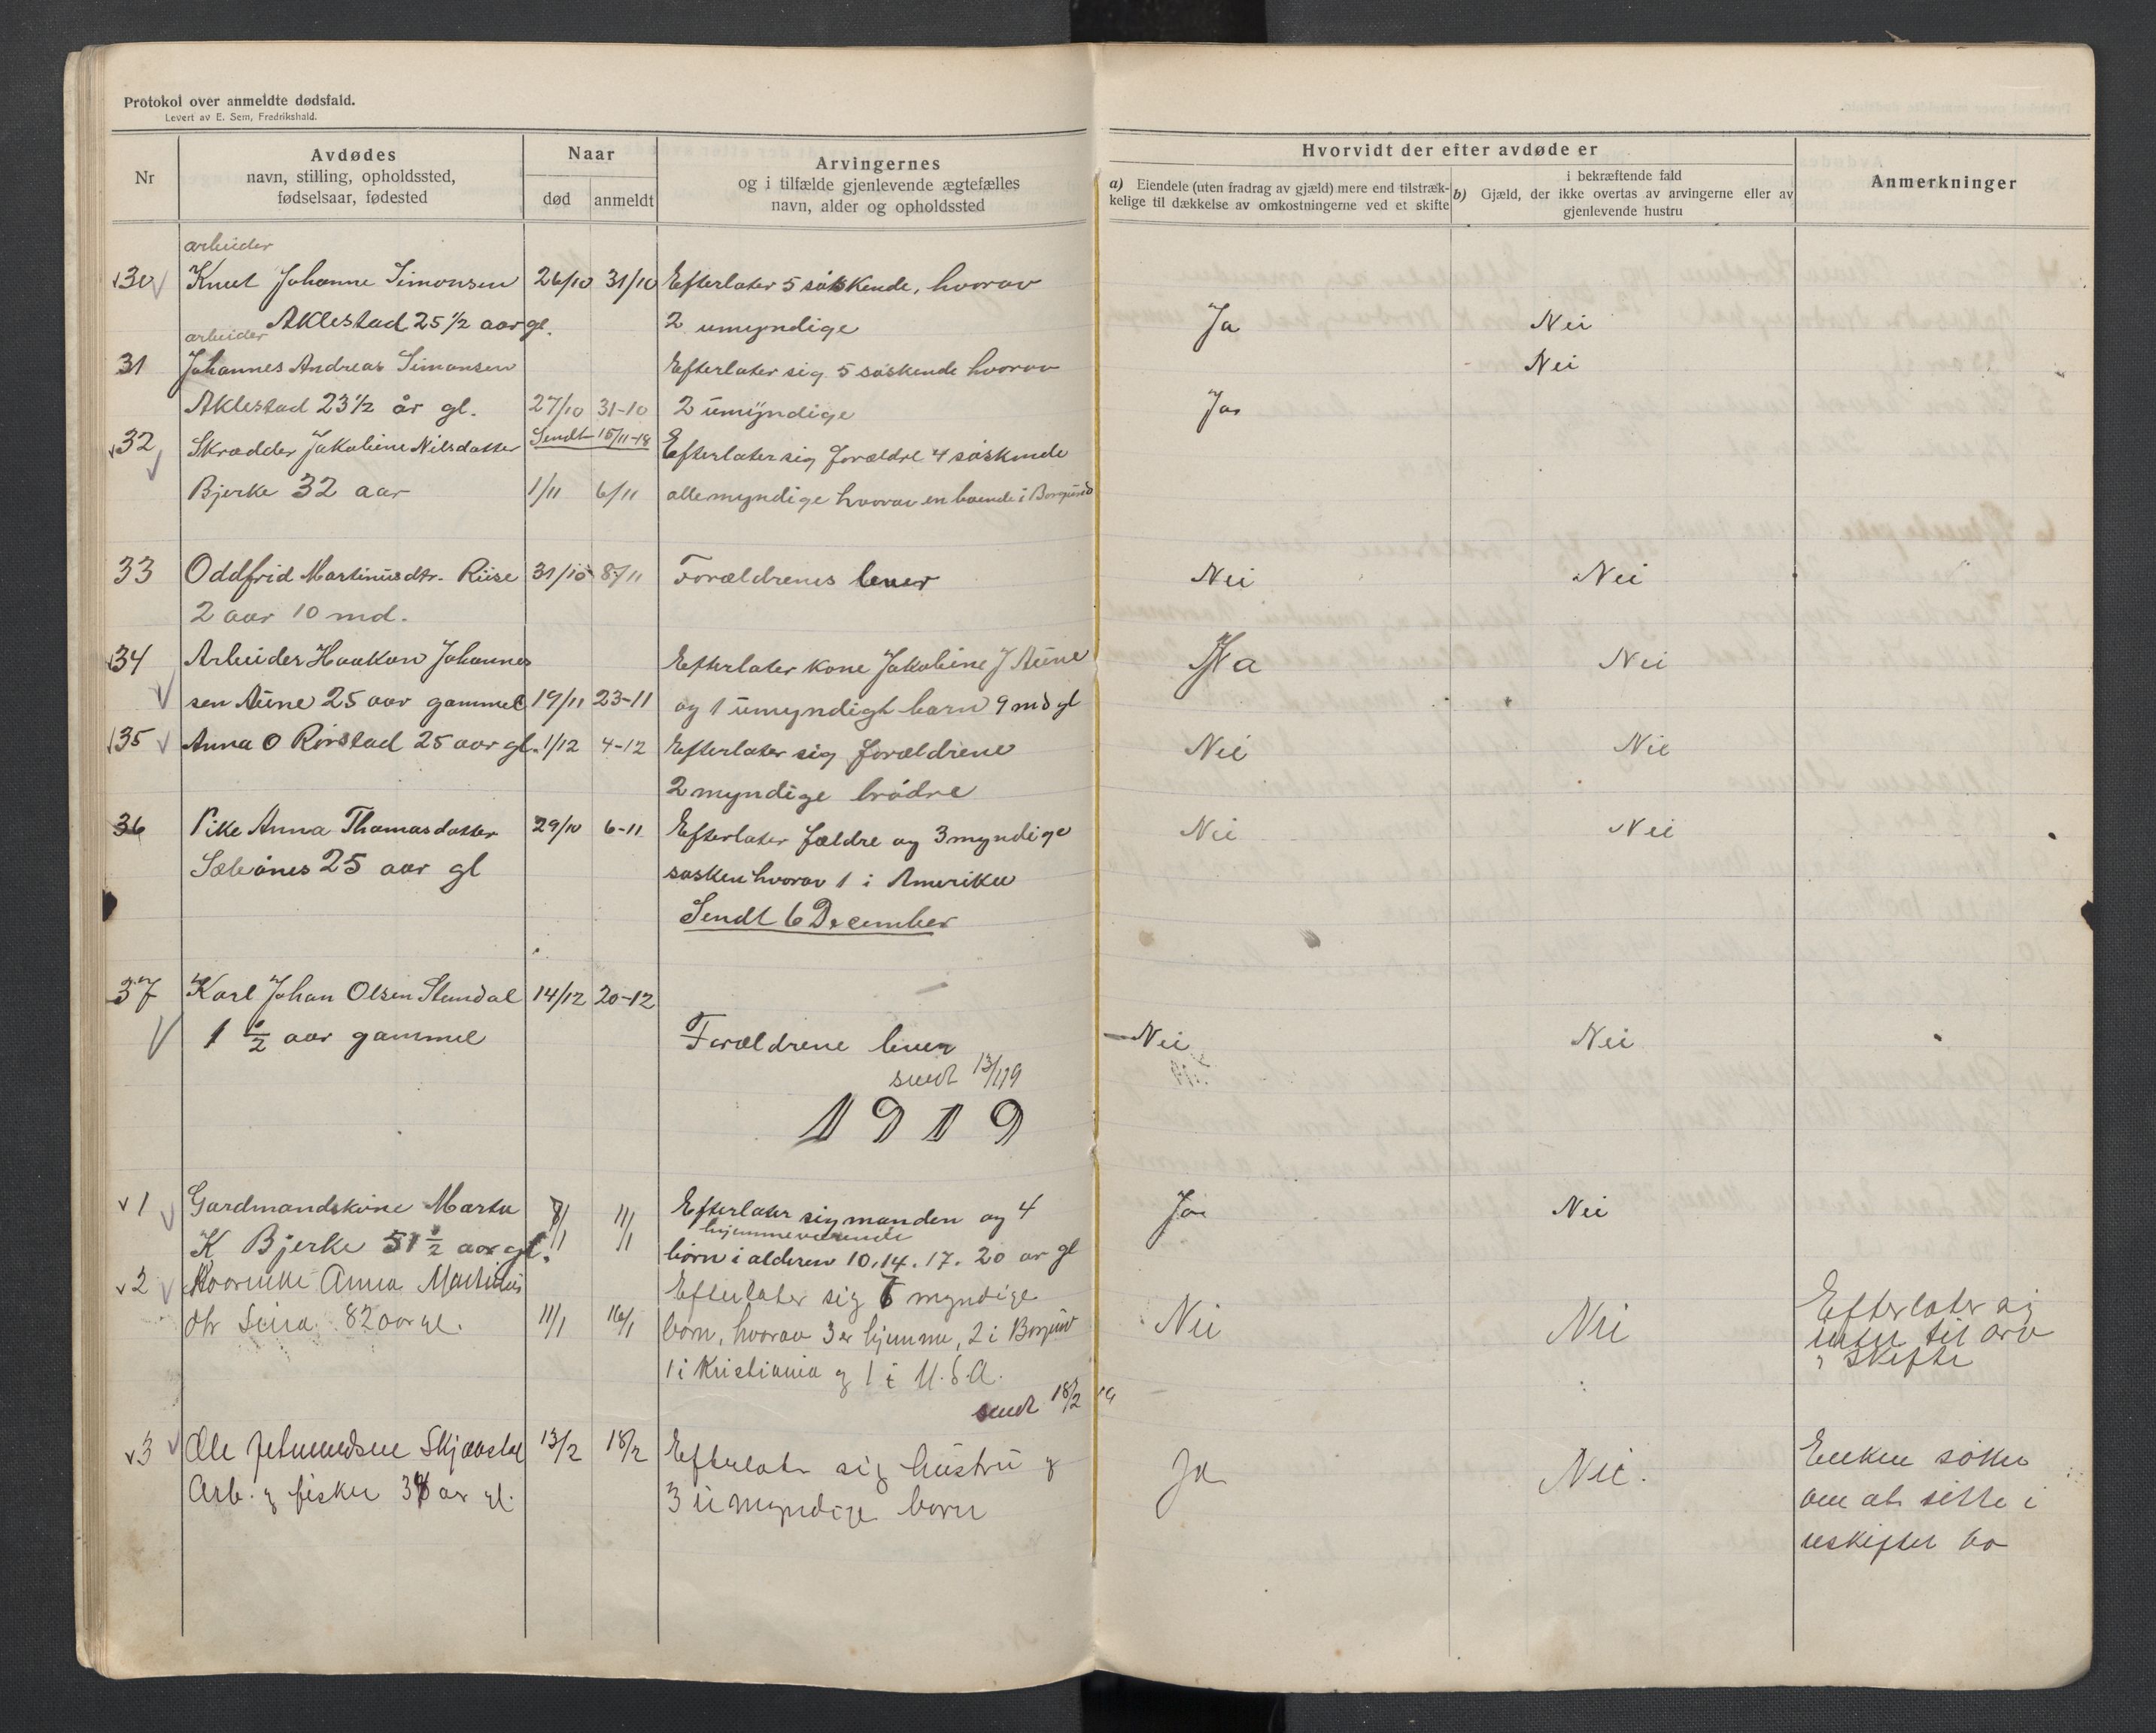 Protokol over anmeldte dødsfald.
Levert av E. Sem, Fredrikshald.
Nr
Avdødes
navn, stilling, opholdssted,
fødselsaar, fødested
Naar
død anmeldt
Arvingernes
og i tilfælde gjenlevende ægtefælles
navn, alder og opholdssted
Hvorvidt der efter avdøde er
a) Eiendele (uten fradrag av gjæld) mere end tilstræk-
kelige til dækkelse av omkostningerne ved et skifte
i bekræftende fald
b) Gjæld, der ikke overtas av arvingerne eller av
gjenlevende hustru
Anmerkninger
arbeider
30 Knut Johanne Simonsen 26/10 31/10 Efterlater 5 søskende, hvorav
Aklestad 25 1/2 aar gl. 2 umyndige Ja Nei
arbeider
31 Johannes Andreas Simonsen Efterlater sig 5 søskende hvorav Nei
Aklestad 23 1/2 år gl. 27/10 31-10 2 umyndige Ja
Sendt 15/11-18
32 Skrædder Jakobine Nilsdatter Efterlater sig forældre 4 søskende
Bjerke 32 aar 1/11 6/11 alle myndige hvorav en boende i Borgund
33 Oddfrid Martinusdtr. Riise 31/10 8/11 Forældrenes lever Nei Nei
2 aar 10 md.
34 Arbeider Haakon Johannes Efterlater kone Jakobine J Aune Ja Nei
sen Aune 25 aar gammel 19/11 23-11 og 1 umyndigt barn 9 md gl
35 Anna O Rørstad 25 aar gl. 1/12 4-12 Efterlater sig forældrene Nei Nei
2 myndige brødre
36 Pike Anna Thomasdatter 29/10 6-11 Efterlater fældre og 3 myndige Nei Nei
Sæbønes 25 aar gl søsken hvorav 1 i Amerika
Sendt 6 December
37 Karl Johan Olsen Standal 14/12 20-12
1 1/2 aar gammel Forældrene lever Nei Nei
sendt 13/1 19
1919
1 Gardmandskone Marta 8/1 11/1 Efterlater sig manden og 4 Ja Nei
hjemmeværende
K Bjerke 51 1/2 aar gl. børn i alderen 10, 14. 17. 20 ar gl
2 Anna Martinus Efterlater sig 7 myndige
dtr 82 aar gl. 11/1 16/1 børn, hvorav 3 er hjemme, 2 i Borgund Nei Nei Efterlater sig
intet til arv
1 i Kristiania og 1 i U.S.A. skifte
sendt 18/2 19
3 Ole Skjaastad 13/2 18/2 Efterlater sig hustru og Ja Nei. Enken søker
Arb. og fisker ar gl. 3 umyndige born om at sitte i
uskiftet bo